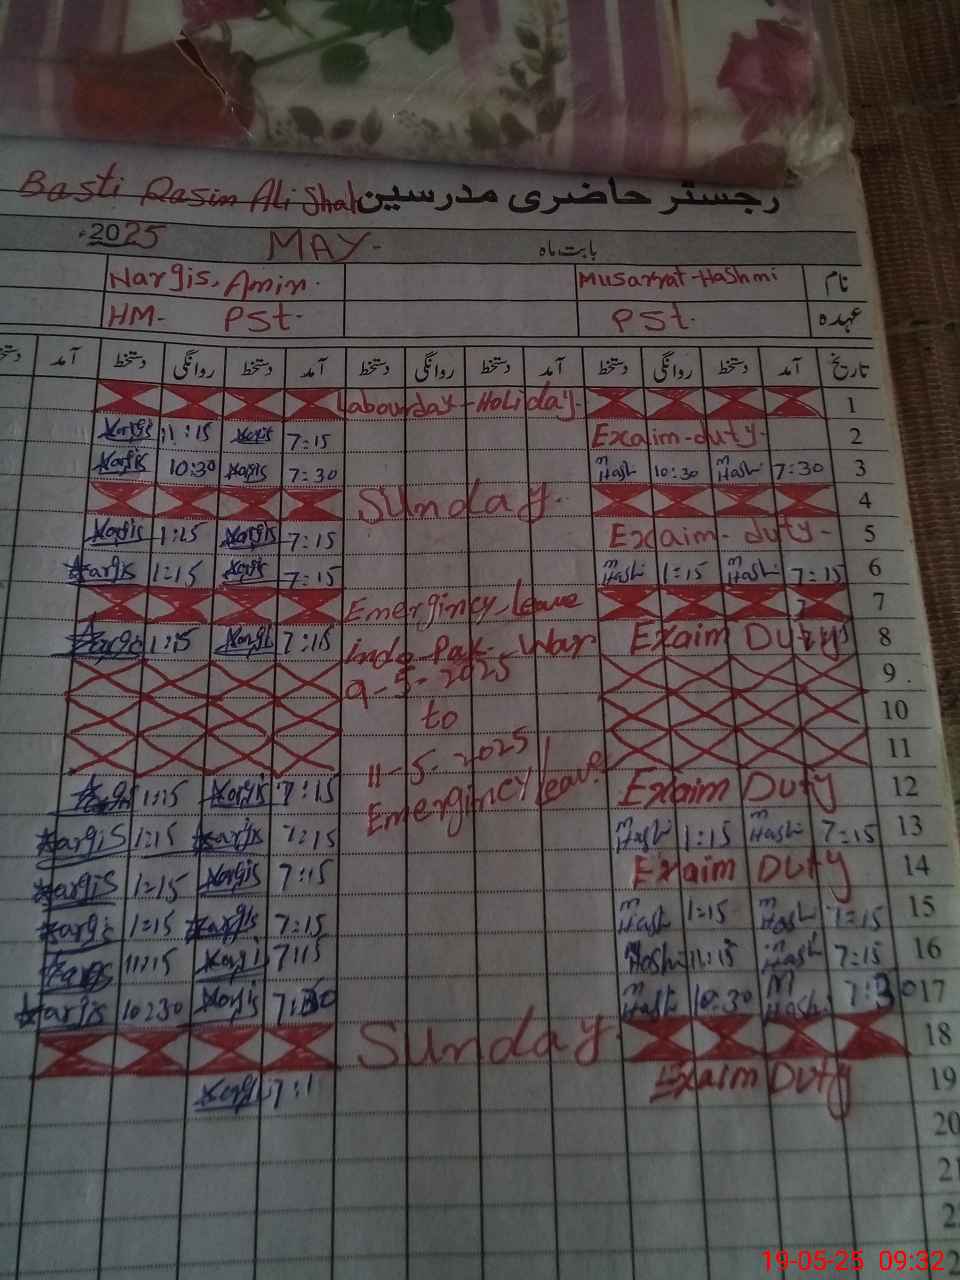 Basti Qasim Ali Shah رجسٹر حاضری مدرسین
2025 MAY- بابت ماہ
Nargis. Amin. Musarrat-Hashmi نام
HM- PSt- PSt. عہدہ
آمد دستخط روانگی دستخط آمد دستخط روانگی دستخط آمد دستخط روانگی دستخط آمد تاریخ
Labourday-Holiday. 1
Nargis 11:15 Nargis 7:15 Exaim-duty. 2
Nargis 10:30 Nargis 7:30 m Hash 10:30 m Hash 7:30 3
Sunday. 4
Nargis 1:15 Nargis 7:15 Exaim-duty- 5
Nargis 1:15 Nargis 7:15 m Hash 1:15 m Hash 7:15 6
Emergincy-Leave 7
Nargis 1:15 Nargis 7:15 indo-Pak-War Exaim Duty 8
9-5-2025 9
to 10
11-5-2025 11
Nargis 1:15 Nargis 7:15 Emergincy leave Exaim Duty 12
Nargis 1:15 Nargis 7:15 m Hash 1:15 m Hash 7:15 13
Nargis 1:15 Nargis 7:15 Exaim Duty 14
Nargis 1:15 Nargis 7:15 m Hash 1:15 m Hash 7:15 15
Nargis 11:15 Nargis 7:15 m Hash 11:15 m Hash 7:15 16
Nargis 10:30 Nargis 7:30 m Hash 10:30 m Hash 7:30 17
Sunday. 18
Nargis 7:1 Exaim Duty 19
20
21
19-05-25 09:32